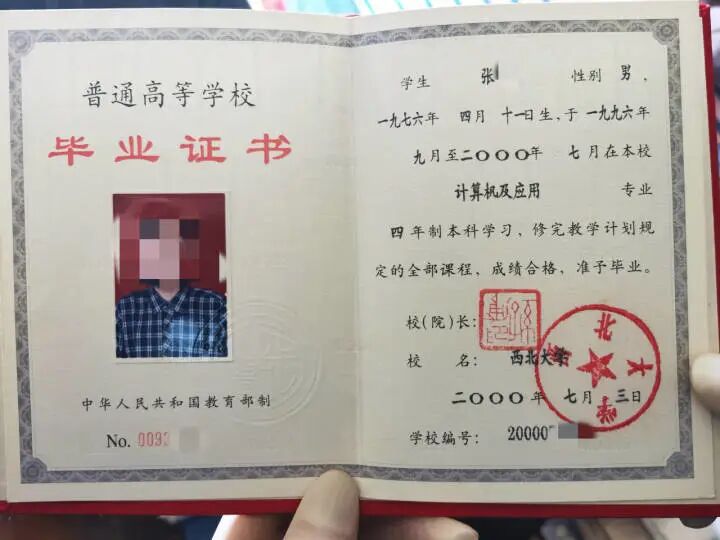 普通高等学校
毕业证书
中华人民共和国教育部制
No. 0093
学生 张 性别 男，
一九七六年 四月 十一日生，于一九九六年
九月至二〇〇〇年 七月在本校
计算机及应用 专业
四年制本科学习，修完教学计划规
定的全部课程，成绩合格，准予毕业。
校(院)长：
校 名： 西北大学
二〇〇〇年 七月 三日
学校编号： 20000
西北大学